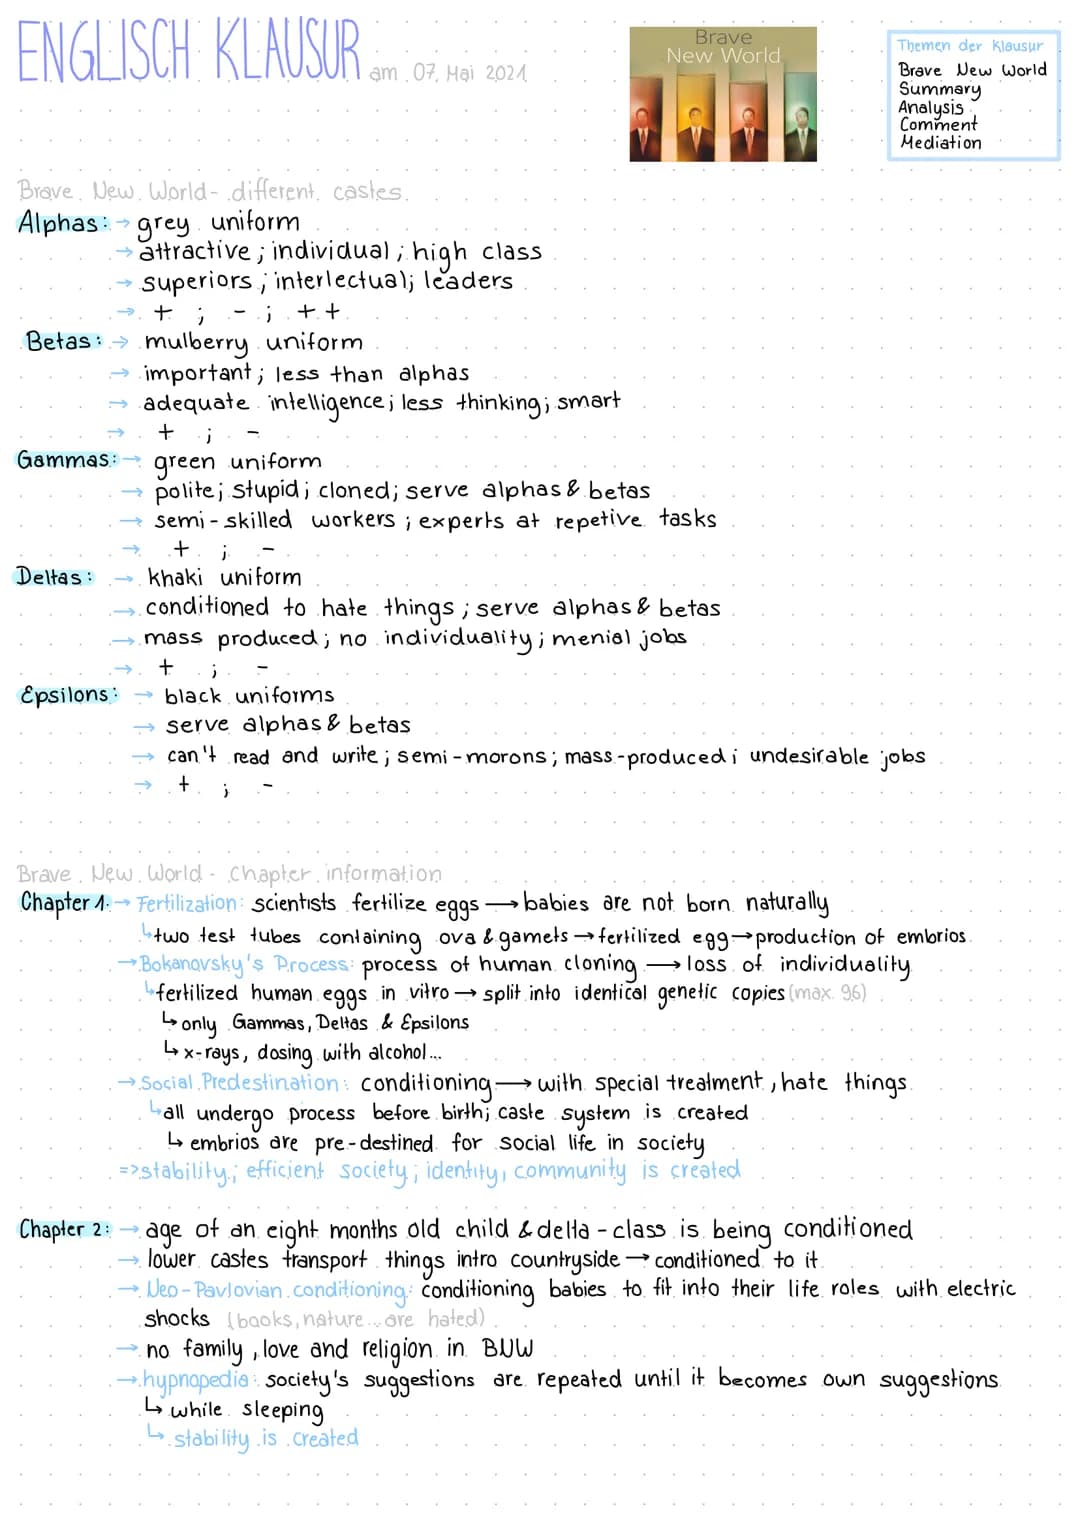 ENGLISCH KLAUSUR am 07. Mai 2021
Brave
New World
Themen der Klausur
Brave New World
Summary
Analysis
Comment
Mediation
Brave New World - different castes
Alphas: → grey uniform
→ attractive ; individual ; high class
→ superiors ; interlectual; leaders
→ + ; - ; ++
Betas: → mulberry uniform
→ important ; less than alphas
→ adequate intelligence ; less thinking ; smart
→ + ; -
Gammas: → green uniform
→ polite ; stupid ; cloned; serve alphas & betas
→ semi-skilled workers ; experts at repetive tasks
→ + ; -
Deltas: → khaki uniform
→ conditioned to hate things ; serve alphas & betas
→ mass produced ; no individuality ; menial jobs
→ + ; -
Epsilons: → black uniforms
→ serve alphas & betas
→ can't read and write ; semi-morons ; mass-produced ; undesirable jobs
→ + ; -
Brave New World - Chapter information
Chapter 1: → Fertilization: scientists fertilize eggs → babies are not born naturally
↳ two test tubes containing ova & gamets → fertilized egg → production of embrios
→ Bokanovsky's Process: process of human cloning → loss of individuality
↳ fertilized human eggs in vitro → split into identical genetic copies (max. 96)
↳ only Gammas, Deltas & Epsilons
↳ x-rays, dosing with alcohol...
→ Social Predestination: conditioning → with special treatment, hate things
↳ all undergo process before birth; caste system is created
↳ embrios are pre-destined for social life in society
=> stability ; efficient society ; identity, community is created
Chapter 2: → age of an eight months old child & delta-class is being conditioned
→ lower castes transport things intro countryside → conditioned to it
→ Neo-Pavlovian conditioning: conditioning babies to fit into their life roles with electric
shocks (books, nature ... are hated)
→ no family, love and religion in BNW
→ hypnopedia: society's suggestions are repeated until it becomes own suggestions
↳ while sleeping
↳ stability is created